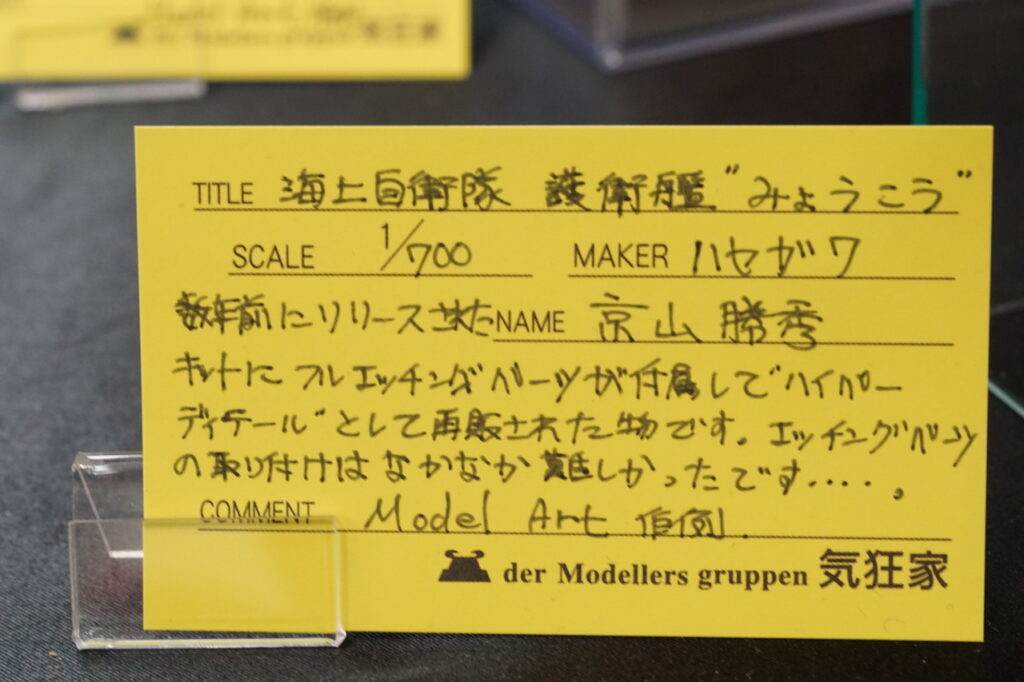 気狂家
TITLE 海上自衛隊 護衛艦"みょうこう"
SCALE 1/700 MAKER ハセガワ
数年前にリリースされた NAME 京山 勝秀
キットにフルエッチングパーツが付属して"ハイパー
ディテール"として再販された物です。エッチングパーツ
の取り付けはなかなか難しかったです....。
COMMENT Model Art 作例.
der Modellers gruppen 気狂家